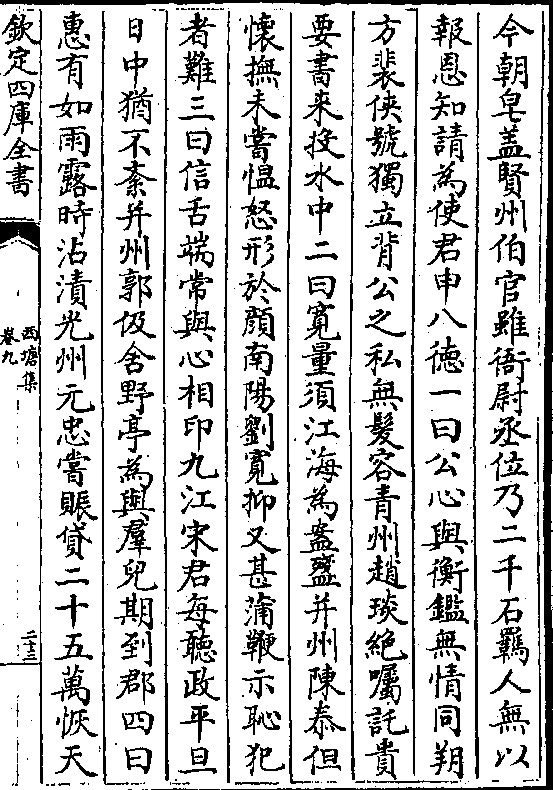 今朝皂盖賢州伯官雖銜尉丞位乃二千石羈人無以
報恩知請為使君申八德一曰公心與衡鑑無情同朔
方裴俠號獨立背公之私無髮容青州趙琰絶囑託貴
要書来投水中二曰寛量須江海為盎盛并州陳泰但
懐撫未嘗愠怒形於顔南陽劉寛抑又甚蒲鞭示恥犯
者難三曰信舌端常與心相印九江宋君每聽政平旦
日中猶不紊并州郭伋舍野亭為與羣兒期到郡四曰
惠有如雨露時沾漬光州元忠嘗賑貸二十五萬恢天
欽定四庫全書
西塘集
卷九
二十三